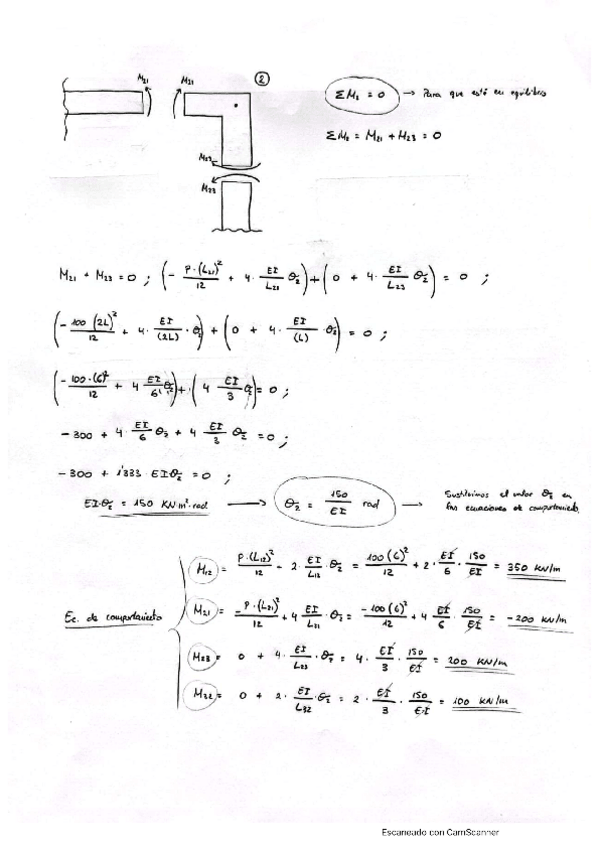 M21 M21 ②
ΣM2 = 0 → Para que esté en equilibrio
ΣM2 = M21 + M23 = 0
M23
M23
M21 + M23 = 0 ; (- P·(L21)²/12 + 4· EI/L21 θ2) + (0 + 4· EI/L23 θ2) = 0 ;
(- 100 (2L)²/12 + 4· EI/(2L) · θ2) + (0 + 4· EI/(L) · θ2) = 0 ;
(- 100·(6)²/12 + 4 EI/6 θ2) + (4 EI/3 θ2) = 0 ;
-300 + 4· EI/6 θ2 + 4 EI/3 θ2 = 0 ;
-300 + 1'333· EIθ2 = 0 ;
EI·θ2 = 150 KN·m²·rad → θ2 = 150/EI rad → Sustituimos el valor θ2 en
las ecuaciones de comportamiento.
Ec. de comportamiento
M12 = P·(L12)²/12 + 2· EI/L12 θ2 = 100(6)²/12 + 2· EI/6 · 150/EI = 350 KN/m
M21 = -P·(L21)²/12 + 4 EI/L21 θ2 = -100(6)²/12 + 4 EI/6 · 150/EI = -200 KN/m
M23 = 0 + 4· EI/L23 · θ2 = 4· EI/3 · 150/EI = 200 KN/m
M32 = 0 + 2· EI/L32 · θ2 = 2· EI/3 · 150/EI = 100 KN/m
Escaneado con CamScanner